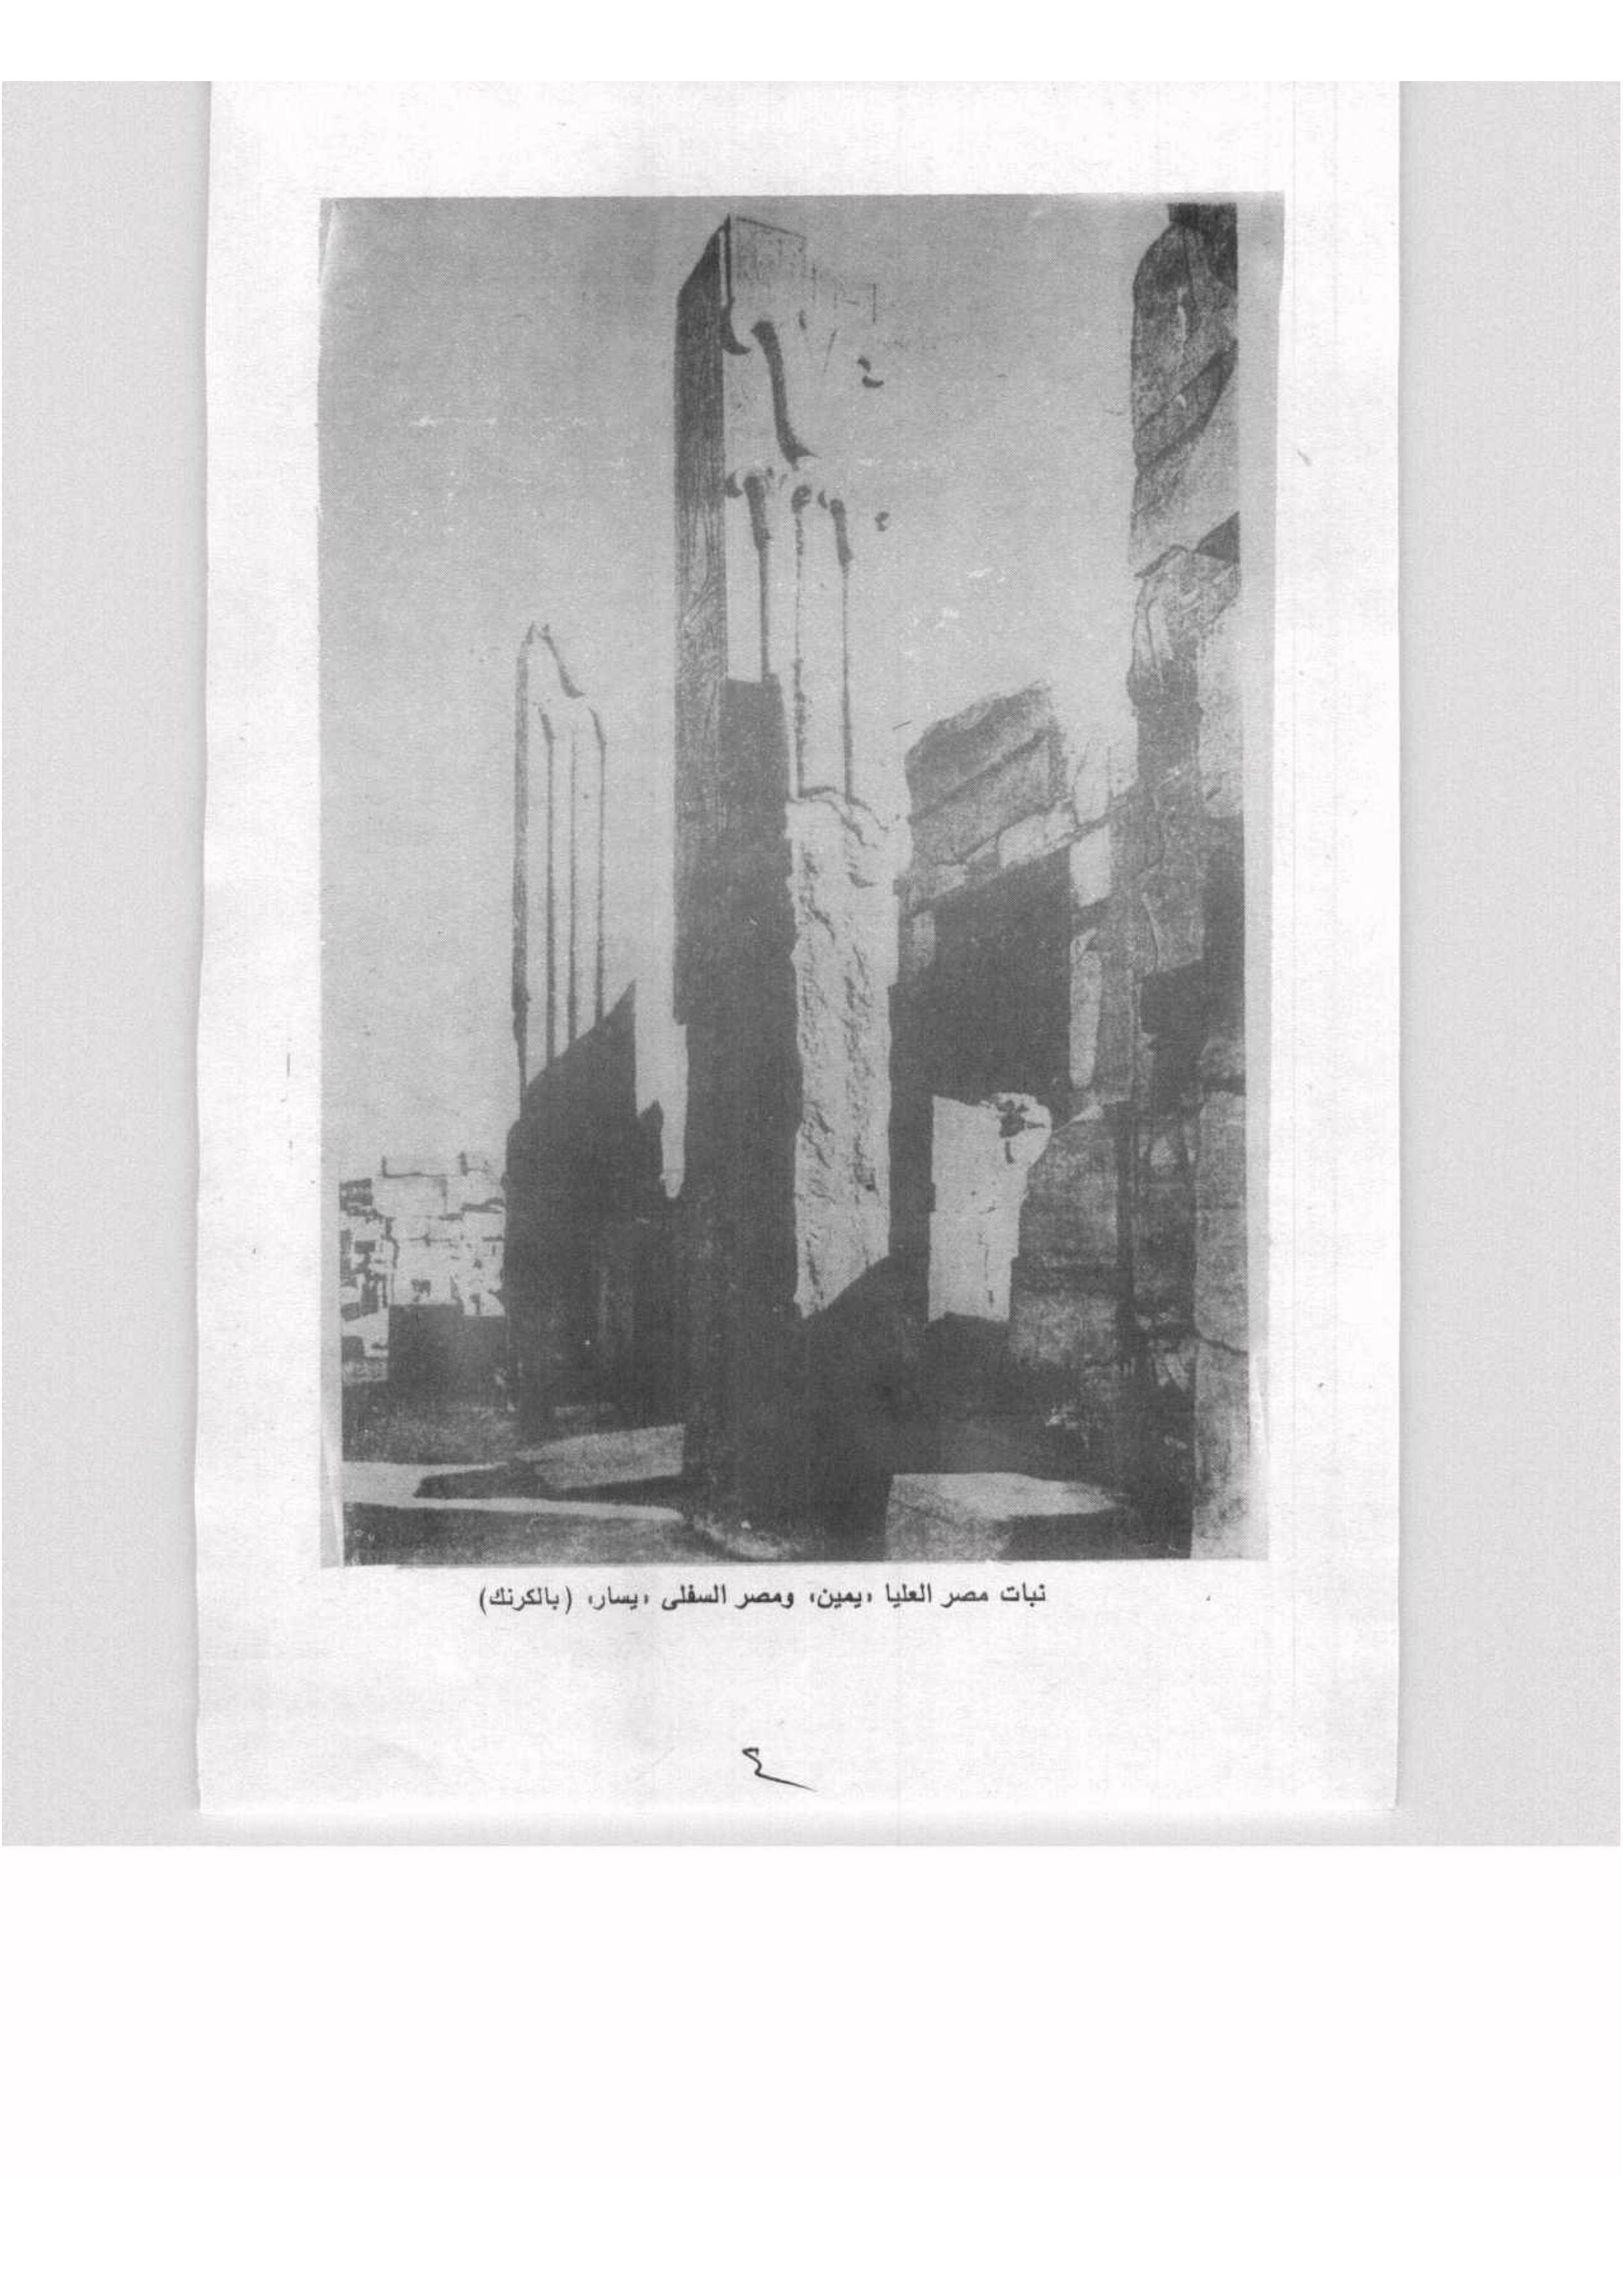 نبات مصر العليا «يمين» ومصر السفلى «يسار» (بالكرنك)
٤